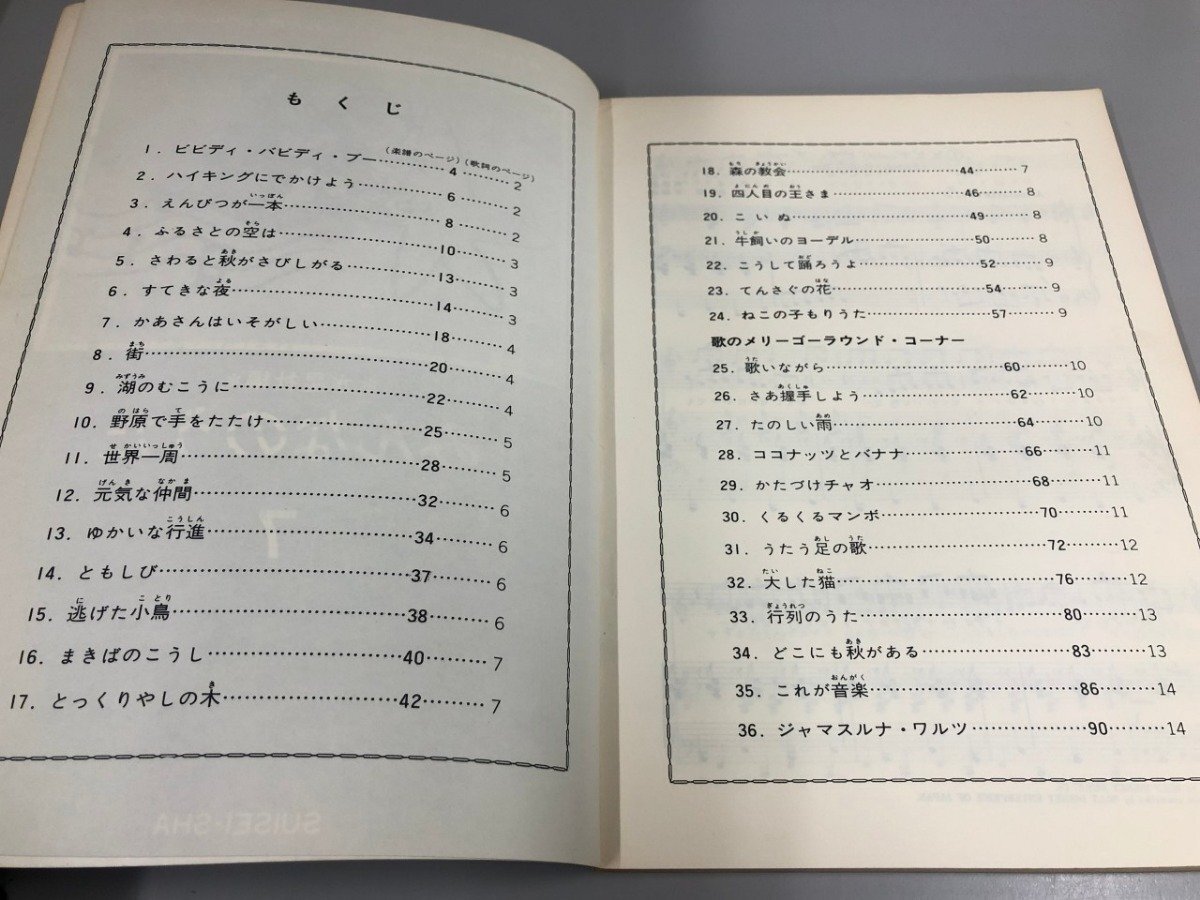 もくじ
(楽譜のページ)(歌詞のページ)
1．ビビディ・バビディ・ブー……………4………2
2．ハイキングにでかけよう……………6………2
3．えんぴつが一本……………8………2
4．ふるさとの空は……………10………3
5．さわると秋がさびしがる……………13………3
6．すてきな夜……………14………3
7．かあさんはいそがしい……………18………4
8．街……………20………4
9．湖のむこうに……………22………4
10．野原で手をたたけ……………25………5
11．世界一周……………28………5
12．元気な仲間……………32………6
13．ゆかいな行進……………34………6
14．ともしび……………37………6
15．逃げた小鳥……………38………6
16．まきばのこうし……………40………7
17．とっくりやしの木……………42………7
SUISEI-SHA
18．森の教会……………44………7
19．四人目の王さま……………46………8
20．こいぬ……………49………8
21．牛飼いのヨーデル……………50………8
22．こうして踊ろうよ……………52………9
23．てんさぐの花……………54………9
24．ねこの子もりうた……………57………9
歌のメリーゴーラウンド・コーナー
25．歌いながら……………60………10
26．さあ握手しよう……………62………10
27．たのしい雨……………64………10
28．ココナッツとバナナ……………66………11
29．かたづけチャオ……………68………11
30．くるくるマンボ……………70………11
31．うたう足の歌……………72………12
32．大した猫……………76………12
33．行列のうた……………80………13
34．どこにも秋がある……………83………13
35．これが音楽……………86………14
36．ジャマスルナ・ワルツ……………90………14